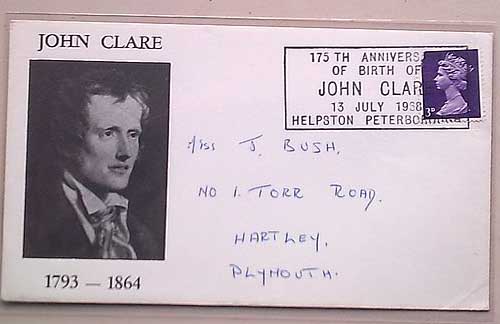 JOHN CLARE
175 TH ANNIVERSA
OF BIRTH OF
JOHN CLARE
13 JULY 1968
HELPSTON PETERBOROUGH
3D
Miss J. BUSH,
NO 1. TORR ROAD.
HARTLEY,
PLYMOUTH.
1793 — 1864